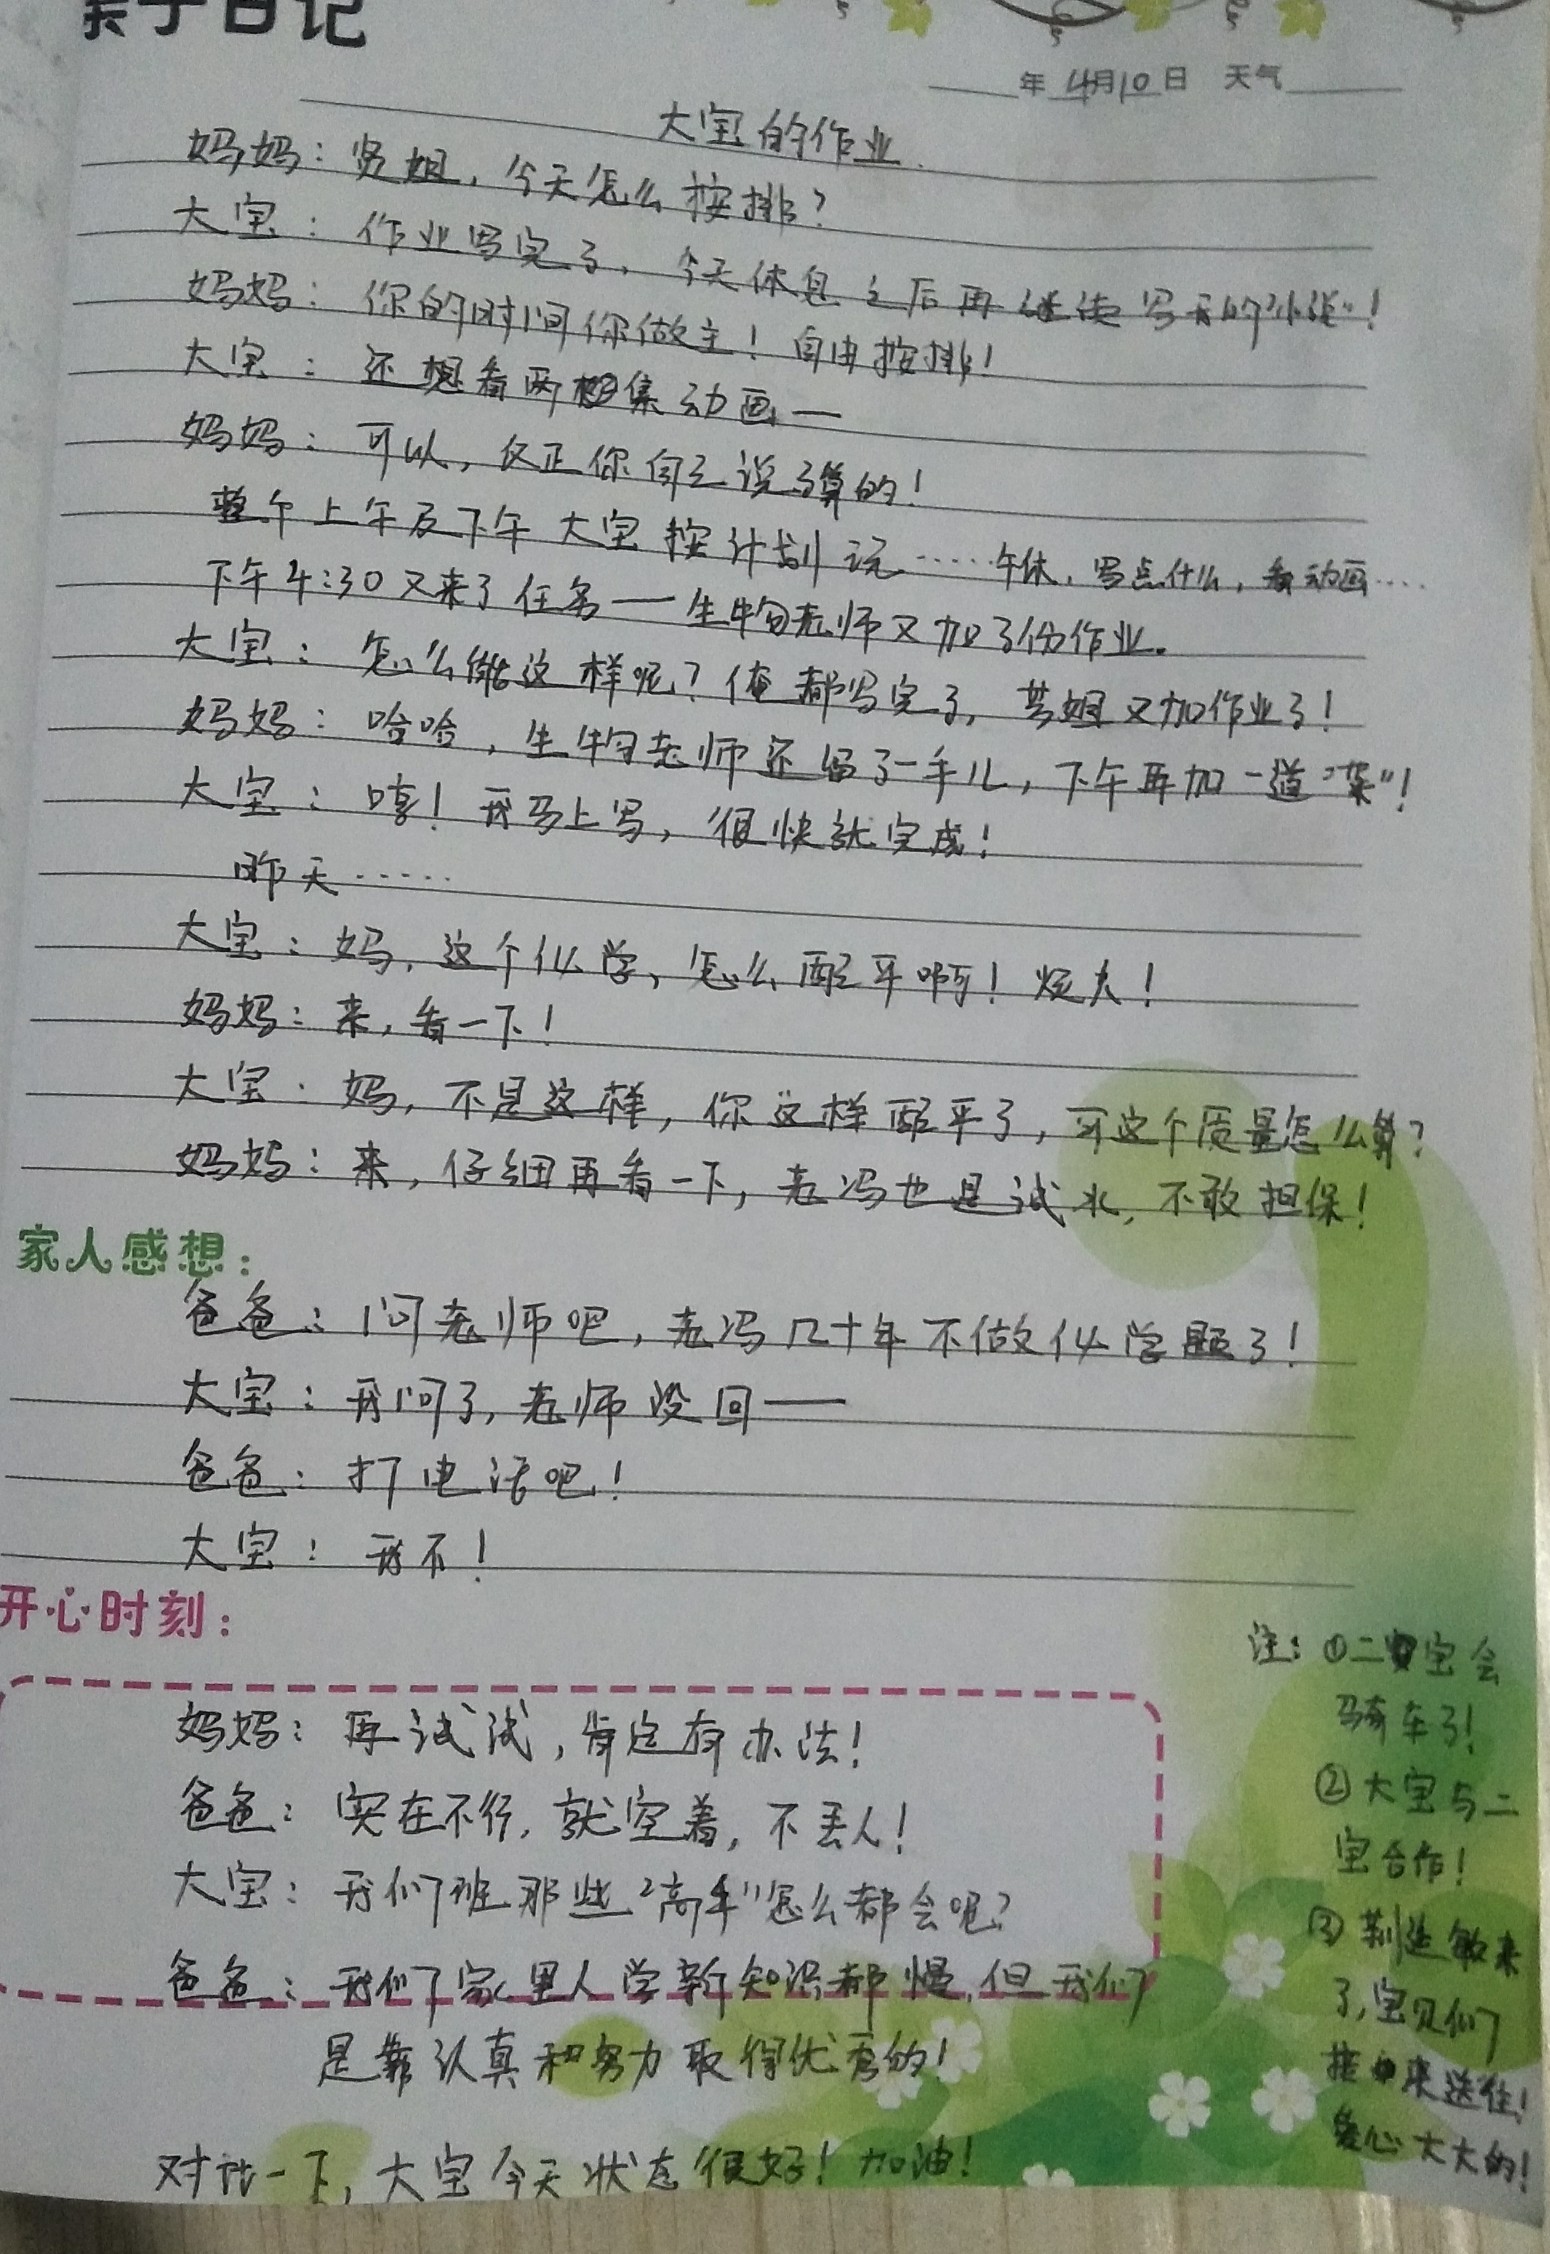 亲子日记
年 4月10日 天气
大宝的作业
妈妈：贤姐，今天怎么按排？
大宝：作业写完了，今天休息之后再继续写我的“小说”！
妈妈：你的时间你做主！自由按排！
大宝：还想看两集动画——
妈妈：可以，反正你自己说了算的！
整个上午及下午 大宝按计划 ……午休，写点什么，看动画……
下午4:30又来了任务——生物老师又加了份作业。
大宝：怎么能这样呢？俺都写完了，芸姐又加作业了！
妈妈：哈哈，生物老师还留了一手儿，下午再加一道“菜”！
大宝：嘻！我马上写，很快就完成！
昨天……
大宝：妈，这个化学，怎么配平啊！烦人！
妈妈：来，看一下！
大宝：妈，不是这样，你这样配平了，可这个质量怎么算？
妈妈：来，仔细再看一下，老冯也是试水，不敢担保！
家人感想：
爸爸：问老师吧，老冯几十年不做化学题了！
大宝：我问了，老师没回——
爸爸：打电话吧！
大宝：我不！
开心时刻：
妈妈：再试试，肯定有办法！
爸爸：实在不行，就空着，不丢人！
大宝：我们班那些“高手”怎么都会呢？
爸爸：我们家里人学新知识都慢，但我们
是靠认真和努力取得优秀的！
对比一下，大宝今天状态很好！加油！
注：①二宝会
骑车了！
②大宝与二
宝合作！
③ 来
了，宝贝们
接 来送往！
爱心大大的！